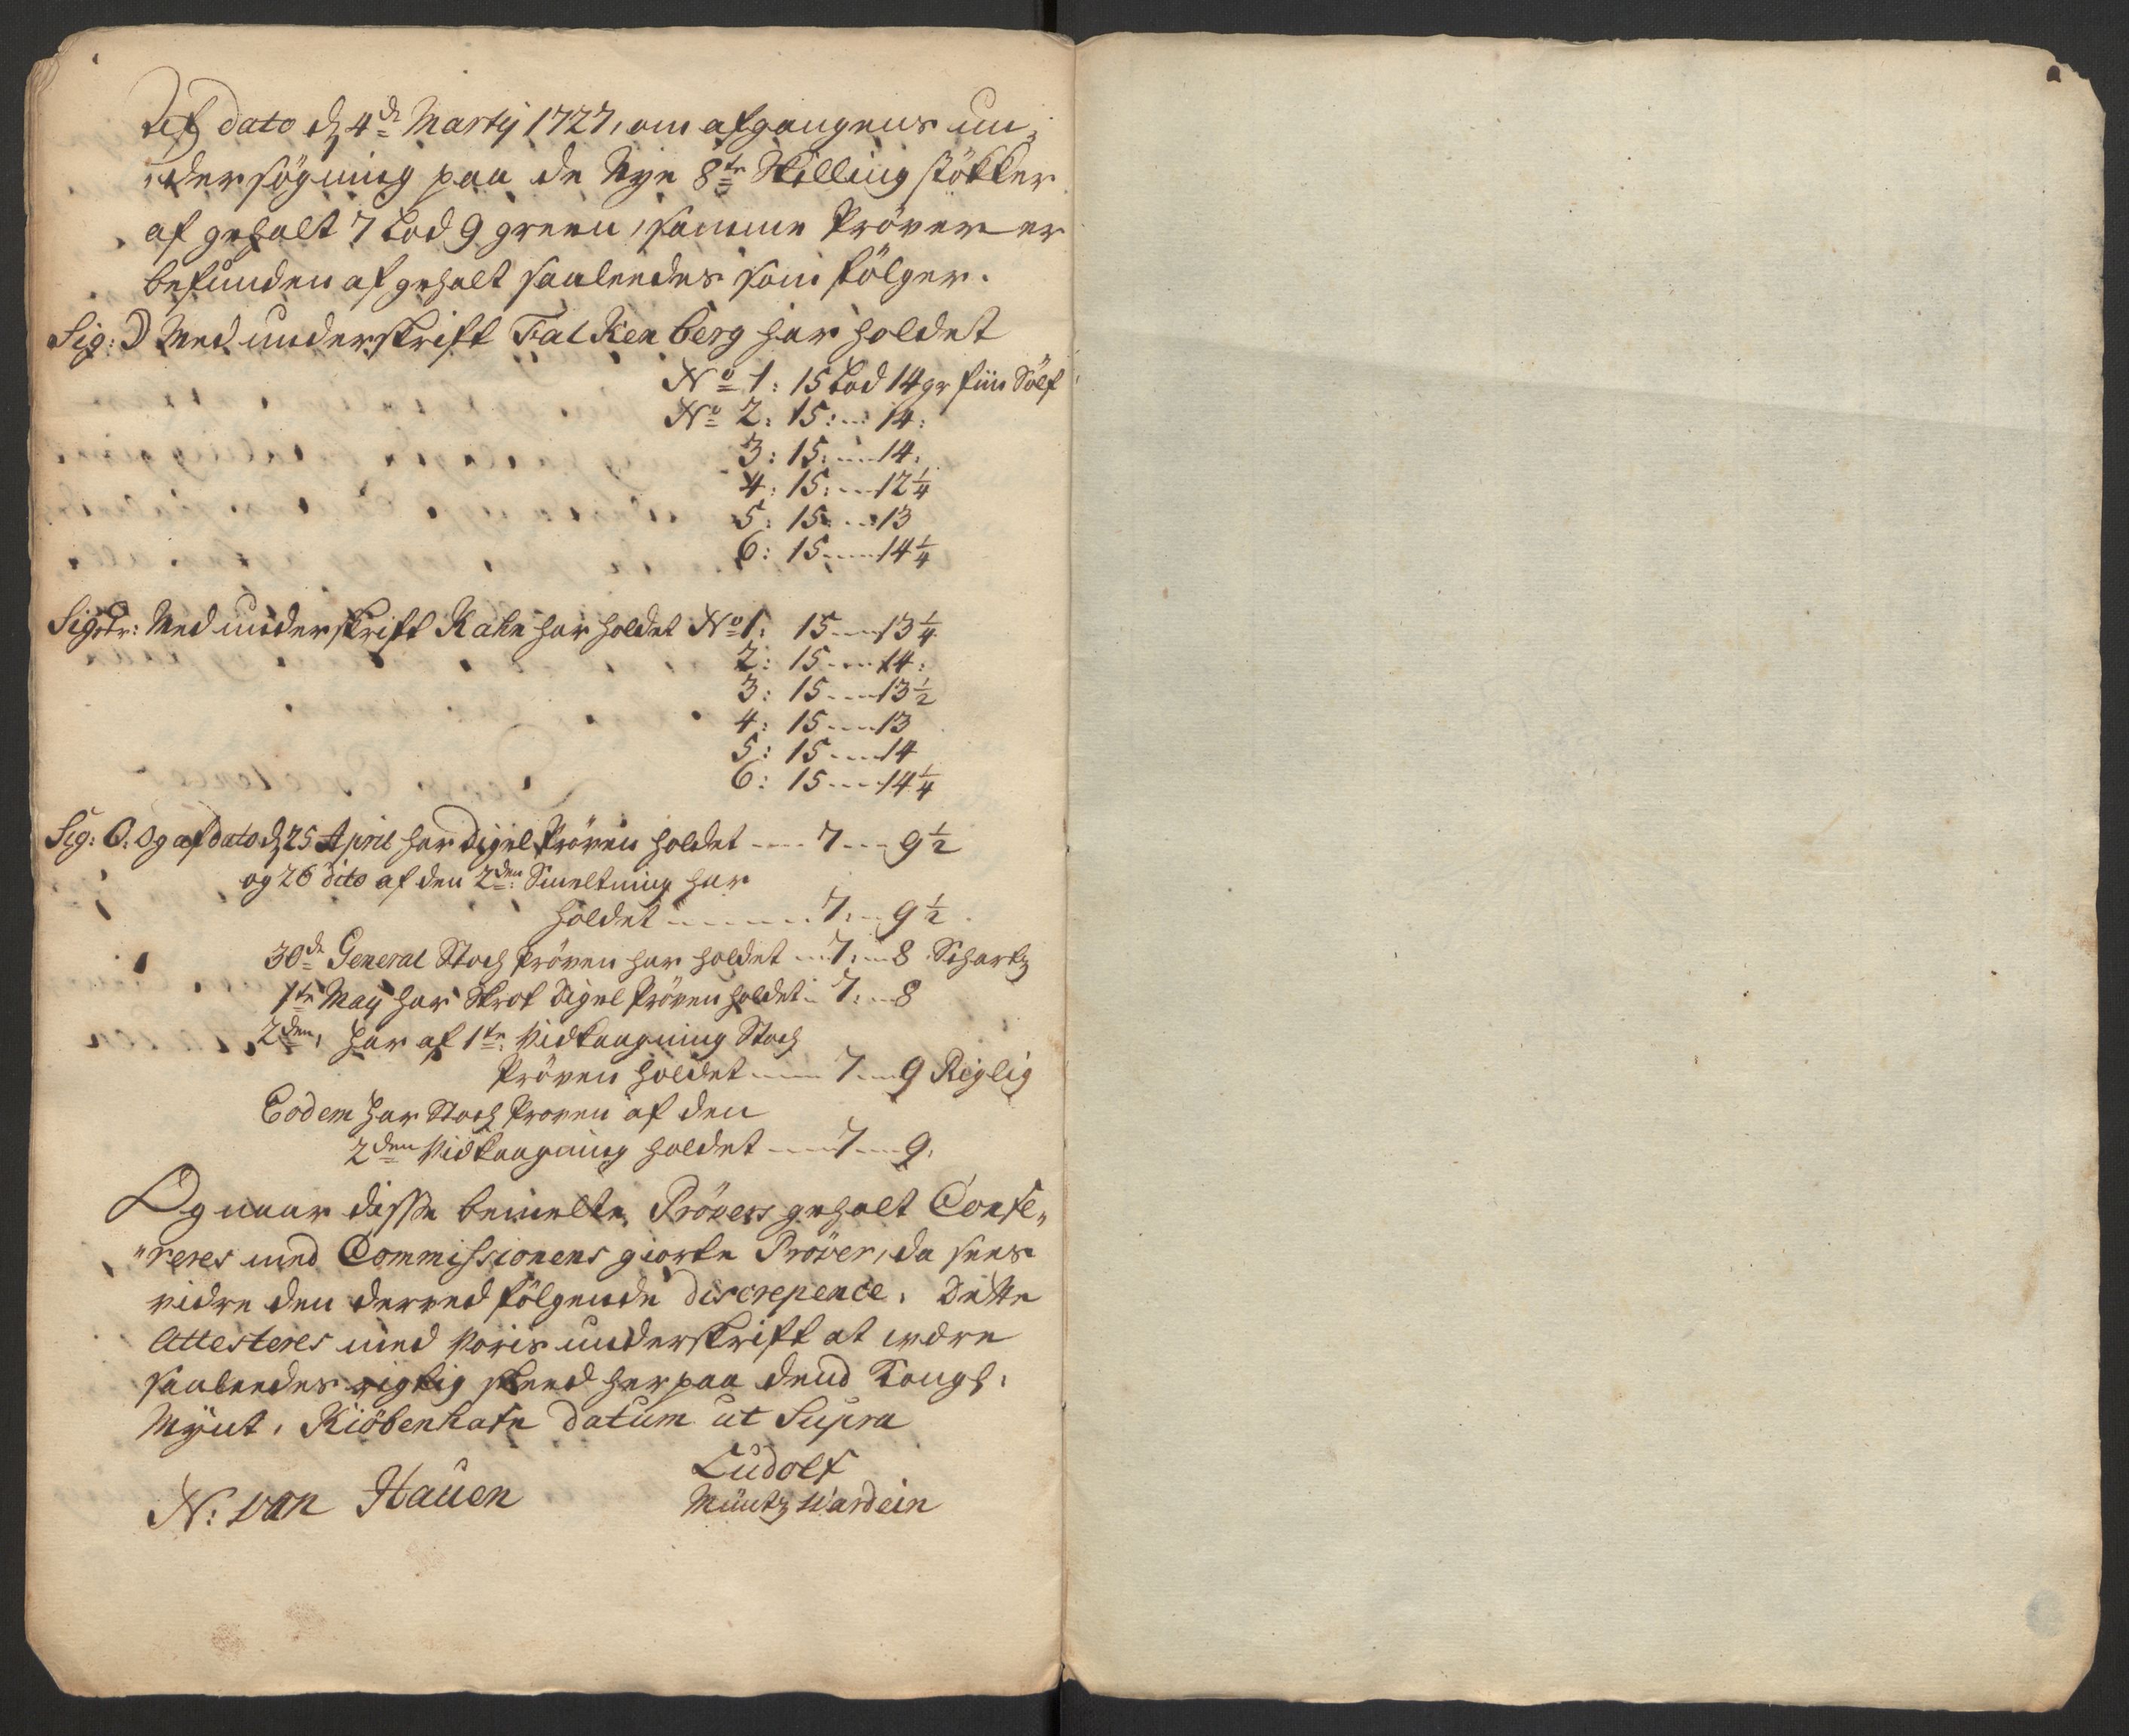 Af dato d. 4de Martij 1727, om afgangens un-
dersögning paa de Nye 8te Skilling stökker
af gehalt 7 Lod 9 green, samme Pröver er
befunden af gehalt saaleedes som fölger.
Sig: D Med underskrift Falkenberg har holdet
No 1: 15 Lod 14 gr fiin Sölf
No 2: 15: --- 14:
3: 15: --- 14:
4: 15: --- 12 1/4
5: 15: --- 13
6: 15 --- 14 1/4
Med underskrift Kahn har holdet No 1: 15 --- 13 1/4
2: 15 --- 14:
3: 15 --- 13 1/2
4: 15 --- 13
5: 15 --- 14
6: 15 --- 14 1/4
Sig: O: Og af dato d. 25 April har Digel Pröven holdet --- 7 --- 9 1/2
og 26 dito af den 2den Smeltning har
holdet --- 7: --- 9 1/2
30de General Stoch Pröven har holdet --- 7: --- 8 Schartz
1te May har Skrot Digel Pröven holdet --- 7: --- 8
2den, har af 1te Vidkaagning Stoch
Pröven holdet --- 7 --- 9 Riglig
Eodem har Stoch Proven af den
2den Vidkaagning holdet --- 7 --- 9.
Og naar disse bemelte Prövers gehalt Confe„
„reres med Commissionens giorte Pröver, da sees
vidre den derved fölgende discrepence. Dette
Attesteres med voris underskrift at være
saaleedes rigtig skeed her paa dend Kongl:
Mÿnt, Kiöbenhafn datum ut Supra
Ludolf
N: van Hauen Müntz Wardein